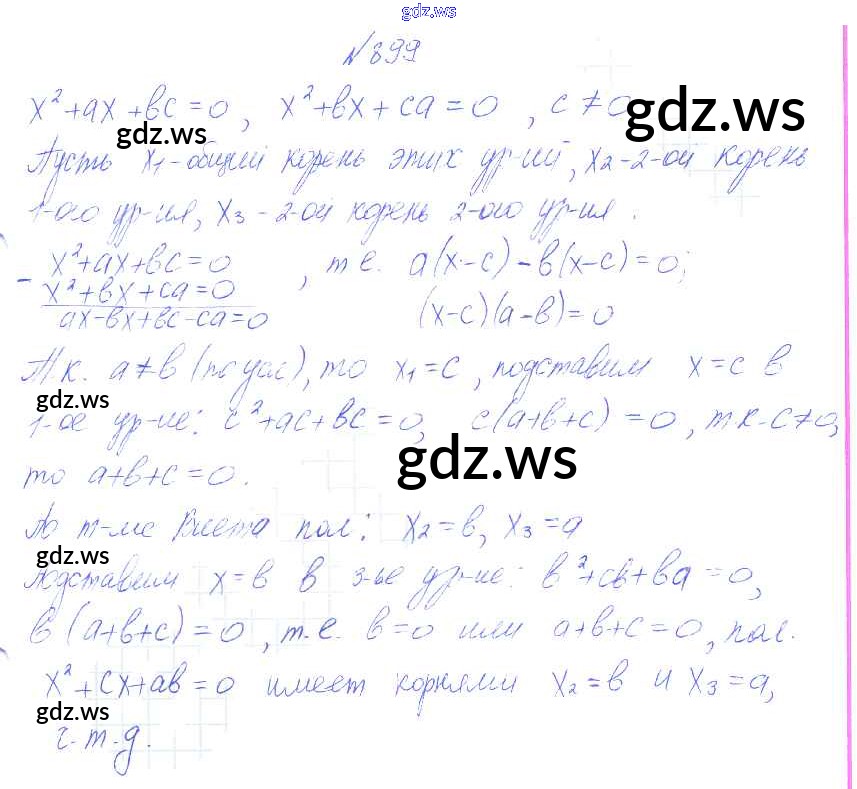 gdz.ws
N899
x²+ax+bc=0, x²+bx+ca=0, c≠0
gdz.ws
gdz.ws
Пусть x₁-общий корень этих ур-ий, x₂-2-ой корень
1-ого ур-ия, x₃-2-ой корень 2-ого ур-ия.
- x²+ax+bc=0
x²+bx+ca=0
ax-bx+bc-ca=0
, т.е. a(x-c)-b(x-c)=0;
(x-c)(a-b)=0
Т.к. a≠b (по усл), то x₁=c, подставим x=c в
gdz.ws
1-ое ур-ие: c²+ac+bc=0, c(a+b+c)=0, т.к. c≠0,
gdz.ws
то a+b+c=0.
По т-ме Виета пол: x₂=b, x₃=a
gdz.ws
Подставим x=b в 3-ье ур-ие: b²+cb+ba=0,
b(a+b+c)=0, т.е. b=0 или a+b+c=0, пол.
x²+cx+ab=0 имеет корнями x₂=b и x₃=a,
gdz.ws
ч.т.д.